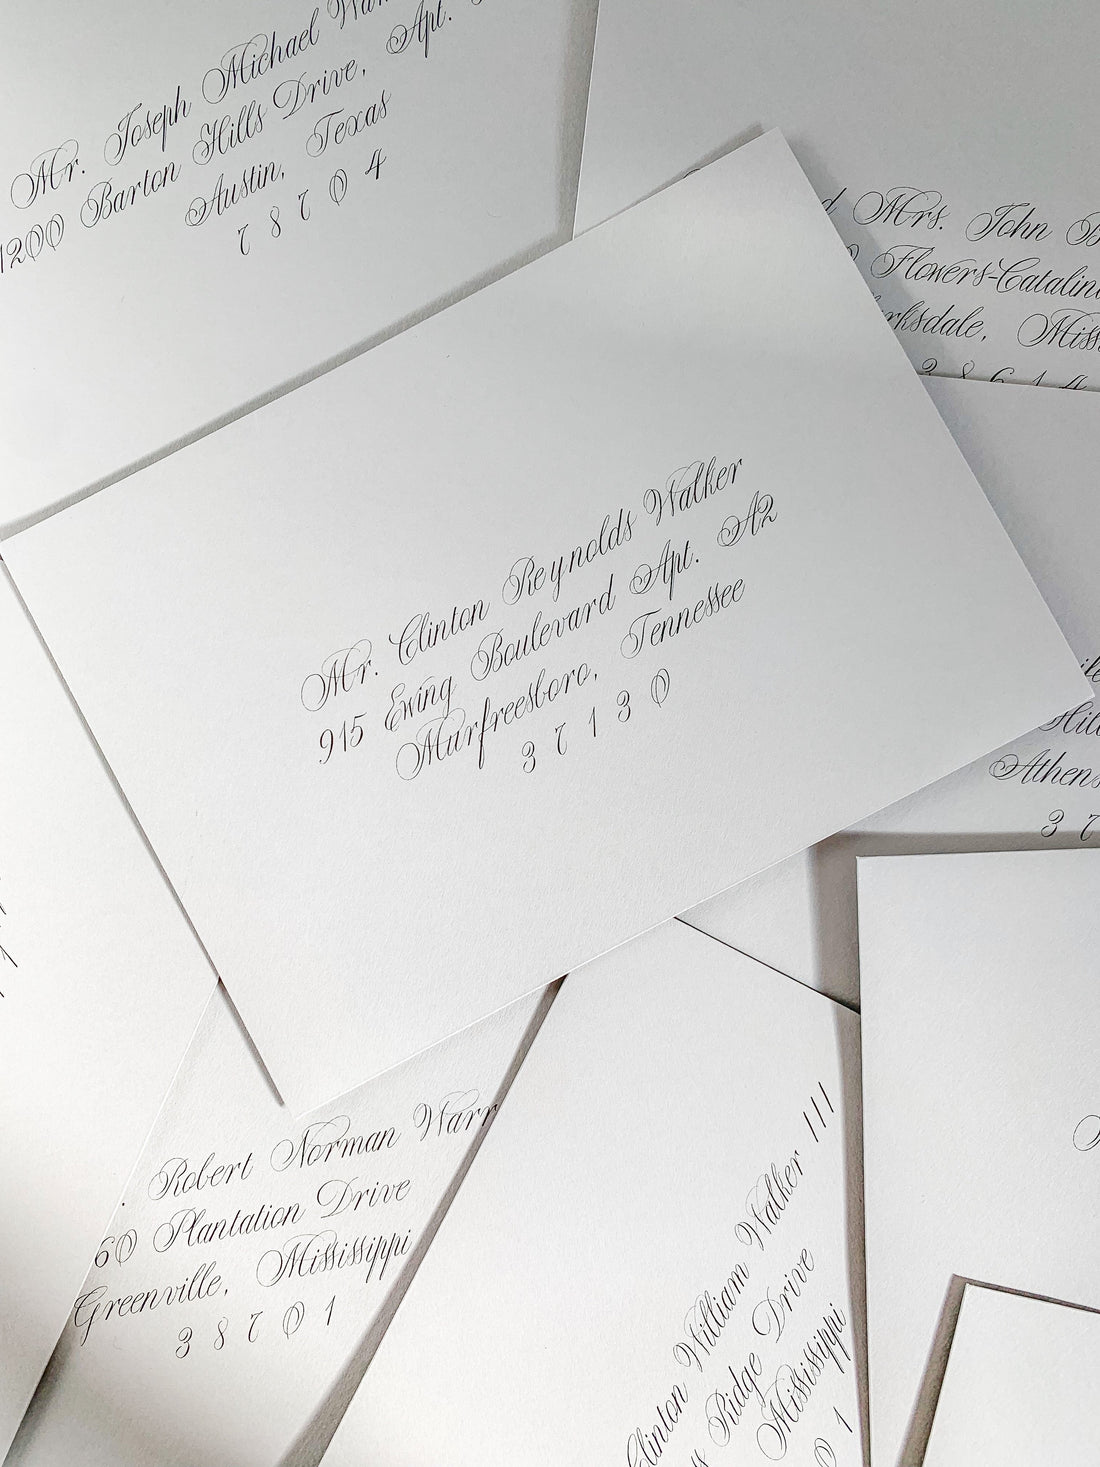 Mr. Joseph Michael
1200 Barton Hills Drive, Apt.
Austin, Texas
7 8 7 0 4
Mrs. John
Flowers-Catalina
Miss
3 8 6 1 4
Mr. Clinton Reynolds Walker
915 Ewing Boulevard Apt. A2
Murfreesboro, Tennessee
3 7 1 3 0
Athens
3 7
Robert Norman Warr
60 Plantation Drive
Greenville, Mississippi
3 8 7 0 1
Clinton William Walker III
Ridge Drive
Mississippi
0 1